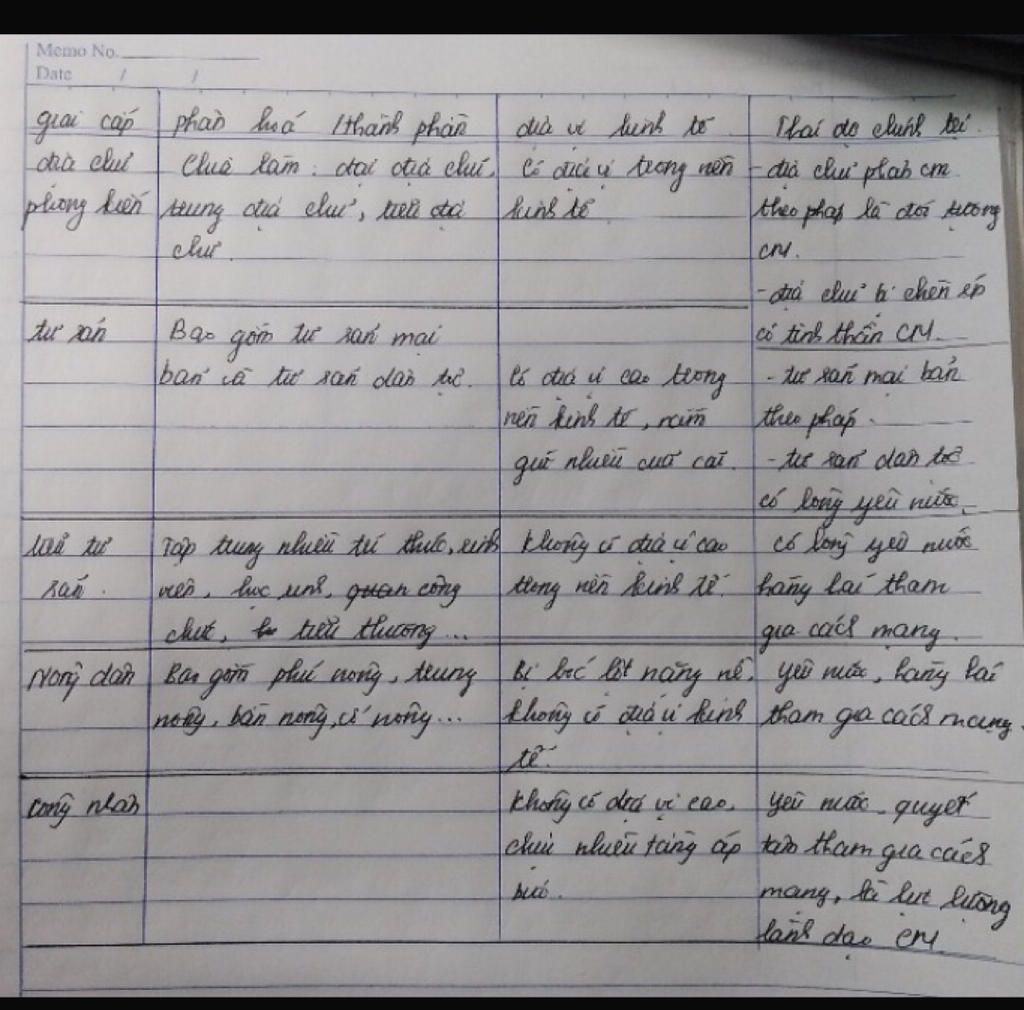 Memo No.
Date / /
giai cấp phân hoá /thành phần địa vị kinh tế Thái độ chính trị.
địa chủ Chia làm: đại địa chủ, Có địa vị trong nền - địa chủ phản cm
phong kiến trung địa chủ, tiểu địa kinh tế theo pháp là đối tượng
chủ. CM.
- địa chủ bị chèn ép
tư sản Bao gồm tư sản mại có tinh thần CM.
bản và tư sản dân tộc. Có địa vị cao trong - tư sản mại bản
nền kinh tế, nắm theo pháp.
giữ nhiều của cải. - tư sản dân tộc
có lòng yêu nước.
tiểu tư Tập trung nhiều trí thức, sinh không có địa vị cao có lòng yêu nước
sản. viên, học sinh, công trong nền kinh tế. hăng hái tham
chức, tiểu thương... gia cách mạng.
Nông dân Bao gồm phú nông, trung Bị bóc lột nặng nề, yêu nước, hăng hái
nông, bần nông, cố nông... không có địa vị kinh tham gia cách mạng.
tế.
công nhân không có địa vị cao, yêu nước quyết
chịu nhiều tầng áp tâm tham gia cách
bức. mạng, là lực lượng
lãnh đạo CM